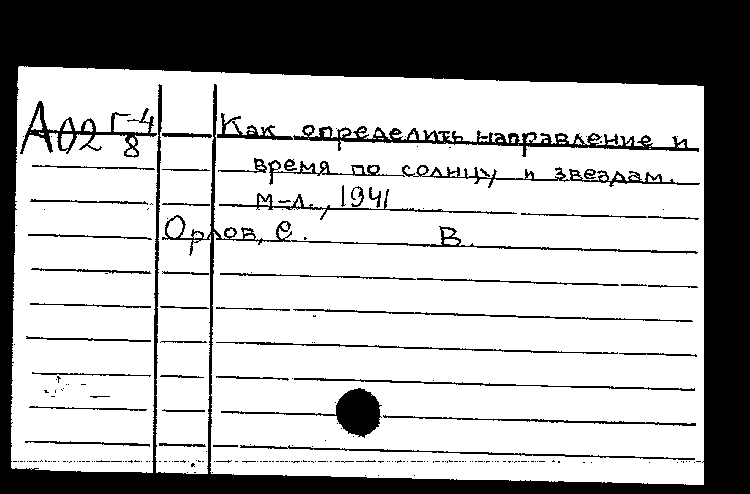 А02 Г-4/8 Как определить направление и
время по солнцу и звездам.
М-Л., 1941
Орлов, С. В.